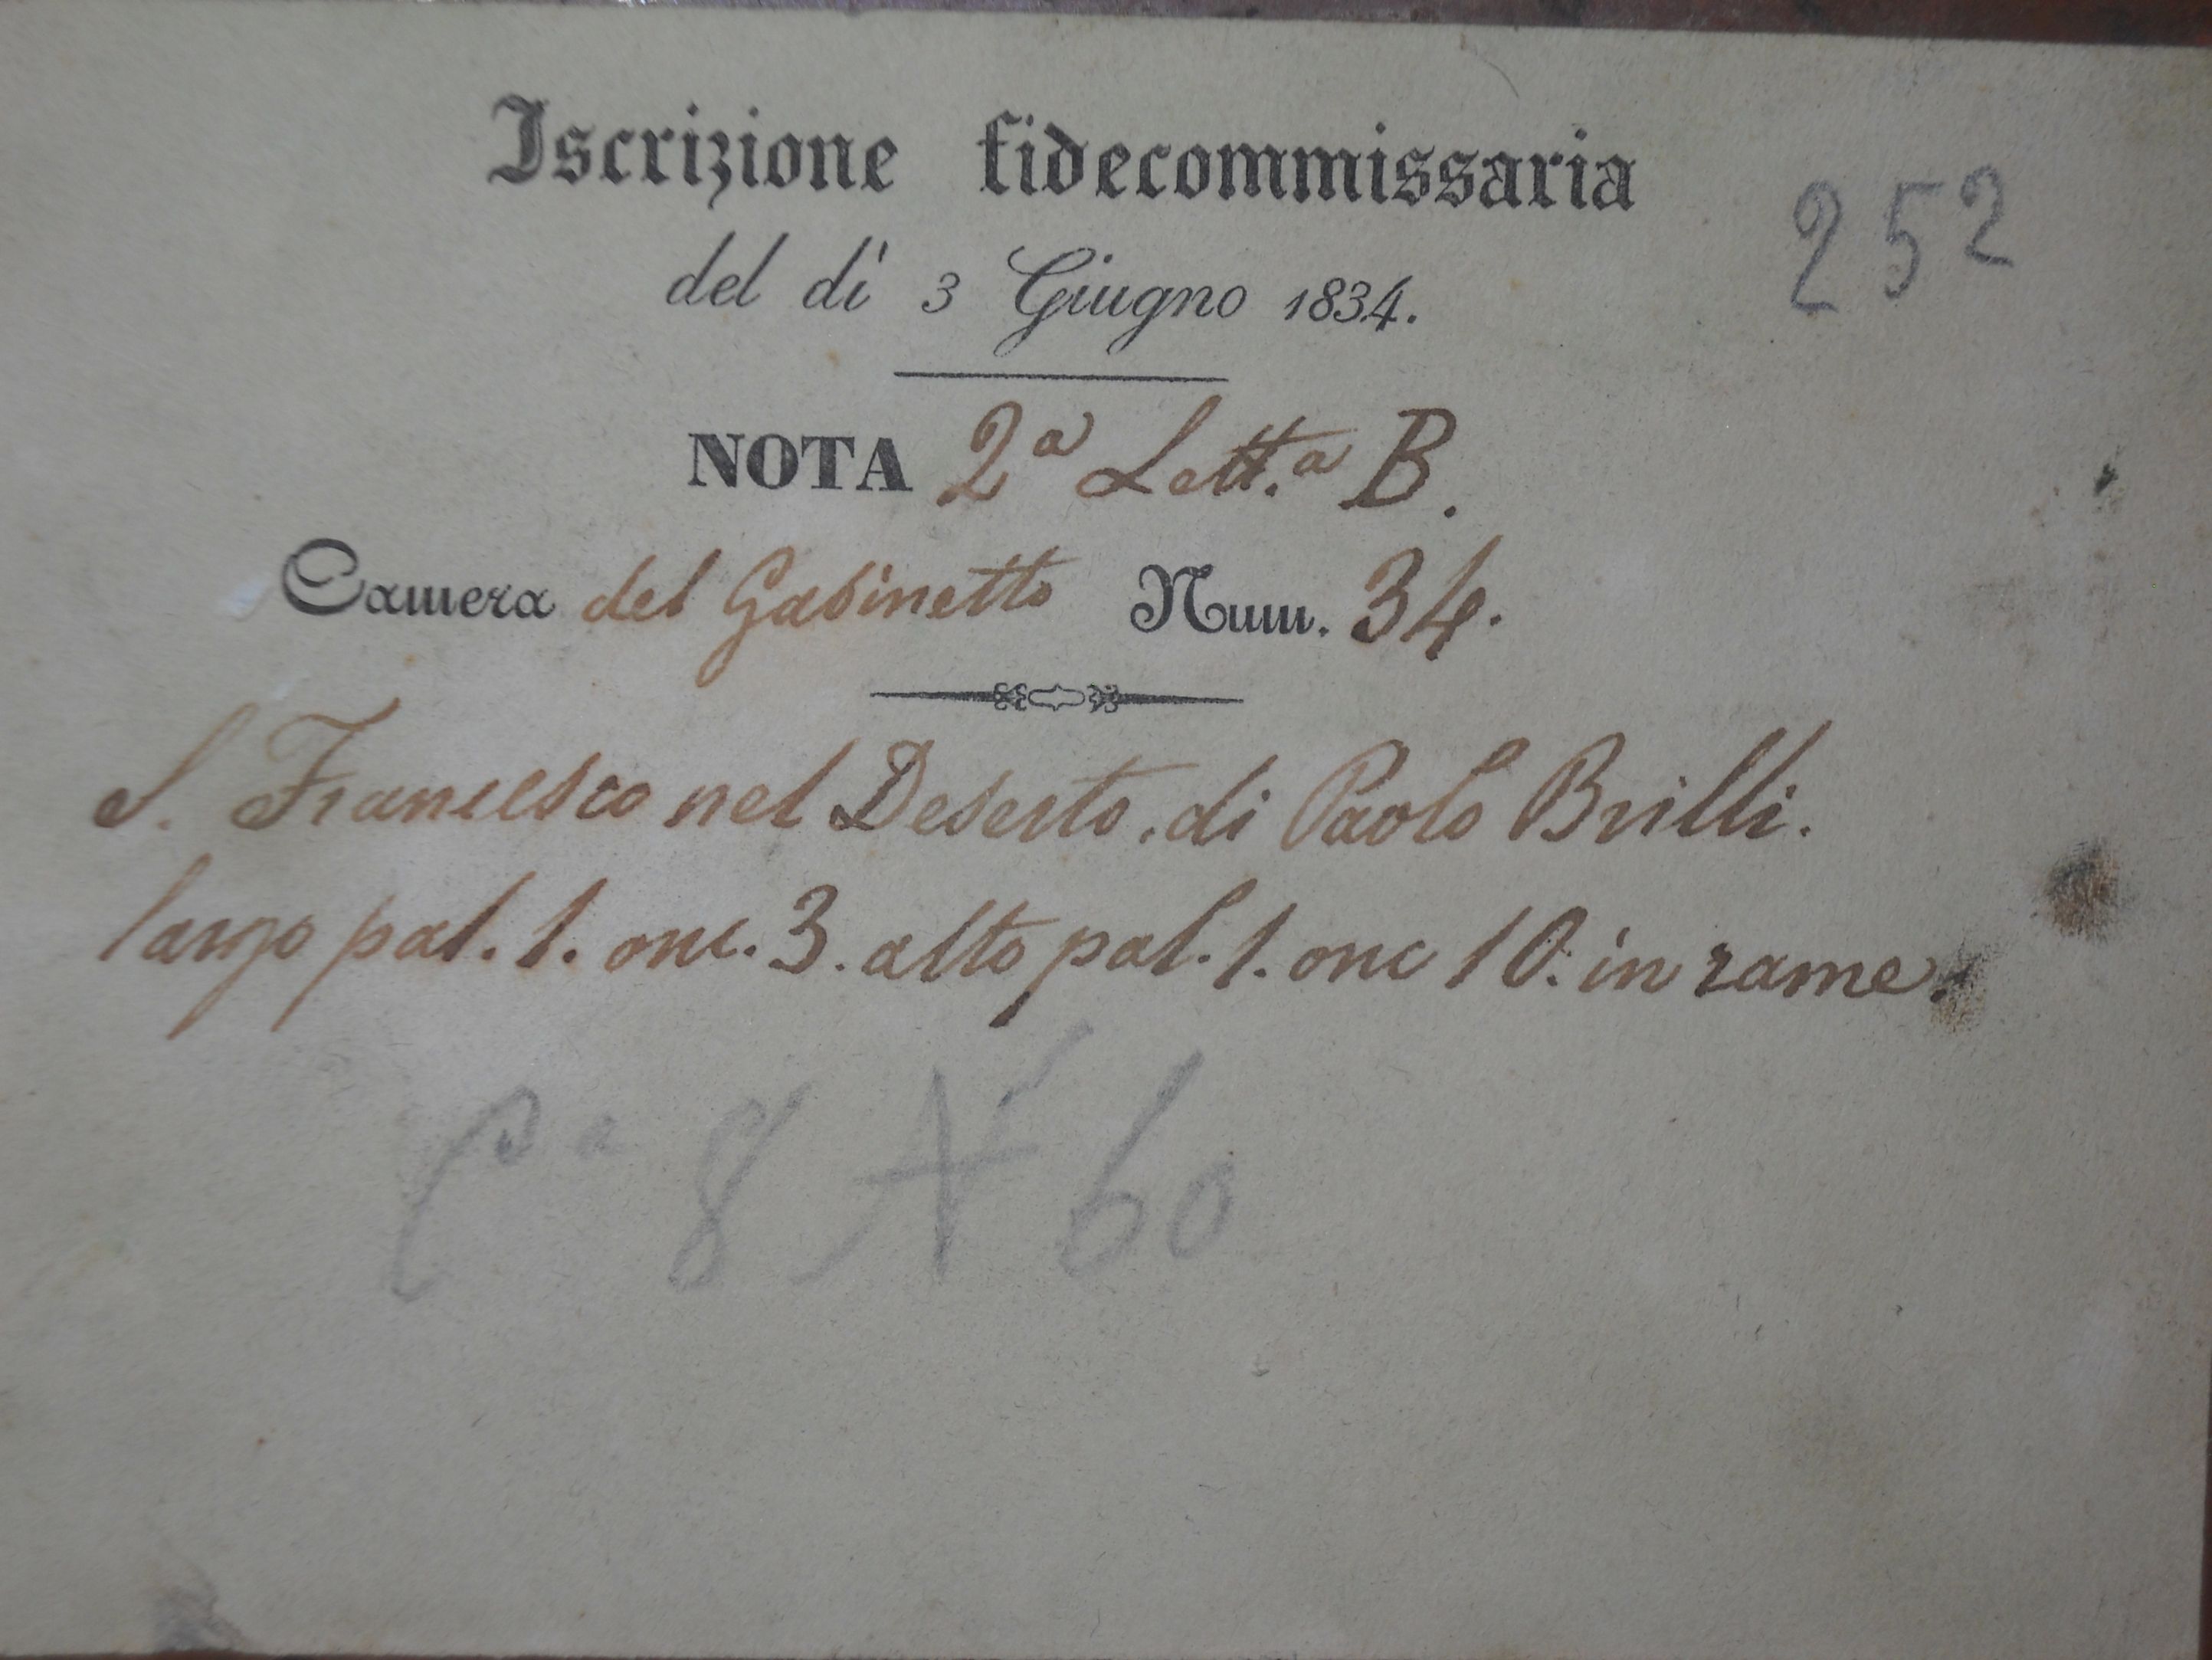 Iscrizione fidecommissaria
252
del dì 3 Giugno 1834.
NOTA 2ª Lett.ª B.
Camera del Gabinetto Num. 34.
S. Francesco nel Deserto, di Paolo Brilli.
largo pal. 1. onc. 3. alto pal. 1. onc 10. in rame.
8 N 60